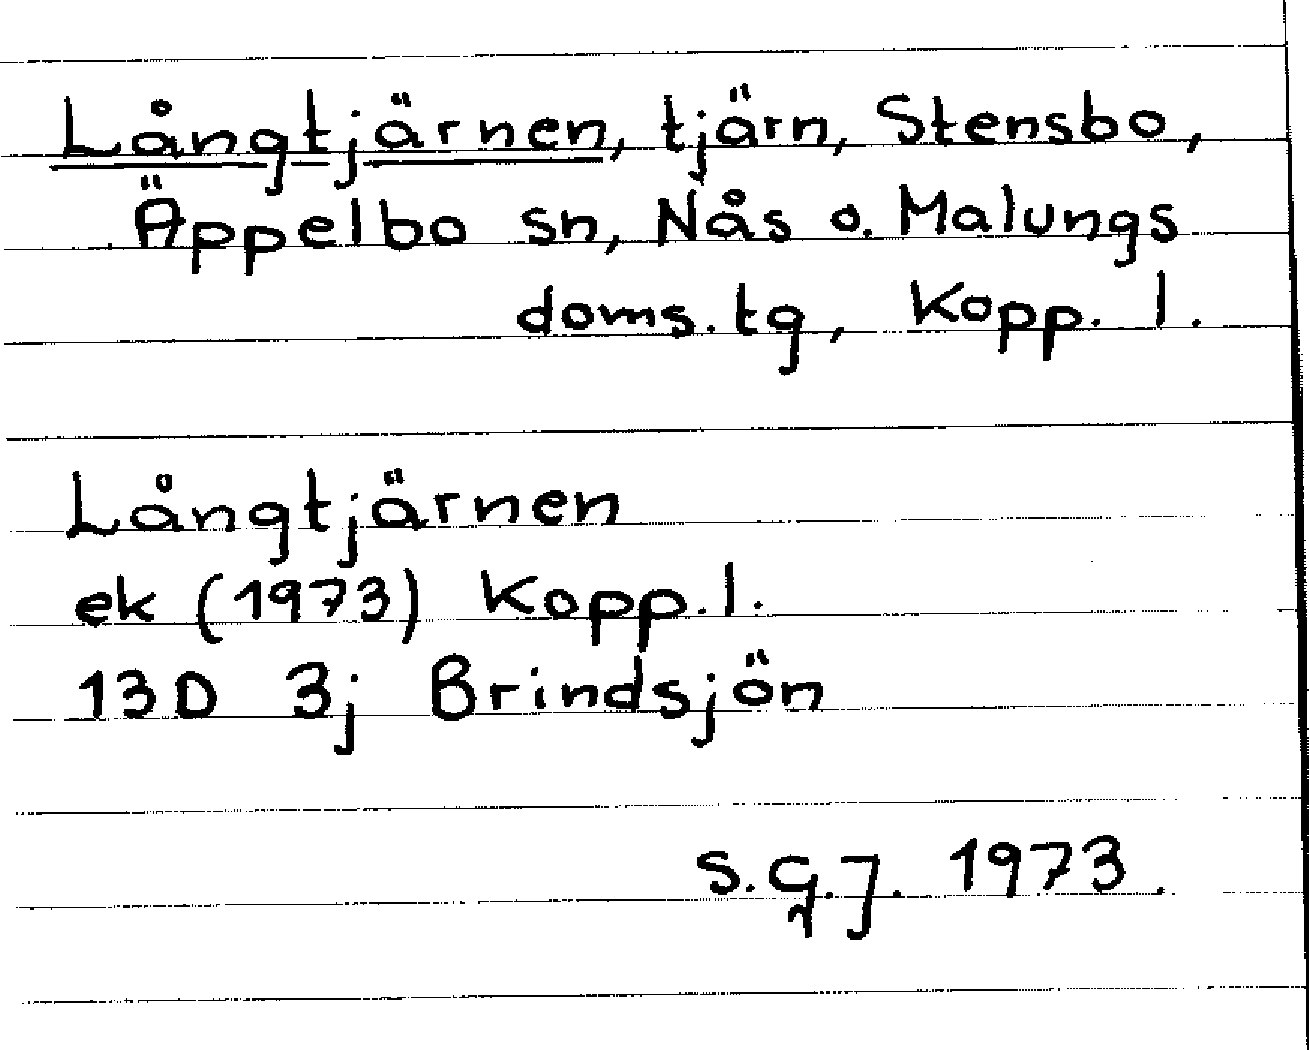 Långtjärnen, tjärn, Stensbo,
Äppelbo sn, Nås o. Malungs
doms.tg, Kopp. l.
Långtjärnen
ek (1973) Kopp. l.
13D 3j Brindsjön
S.G.J. 1973.